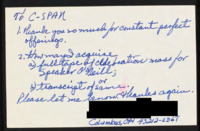 To C-SPAN
1. Thank you so much for constant perfect
offerings.
2. How may I acquire
1) full tape of celebration mass for
Speaker O'Neill;
2) transcript of same?
Please let me know. Thanks again.
Columbus, OH